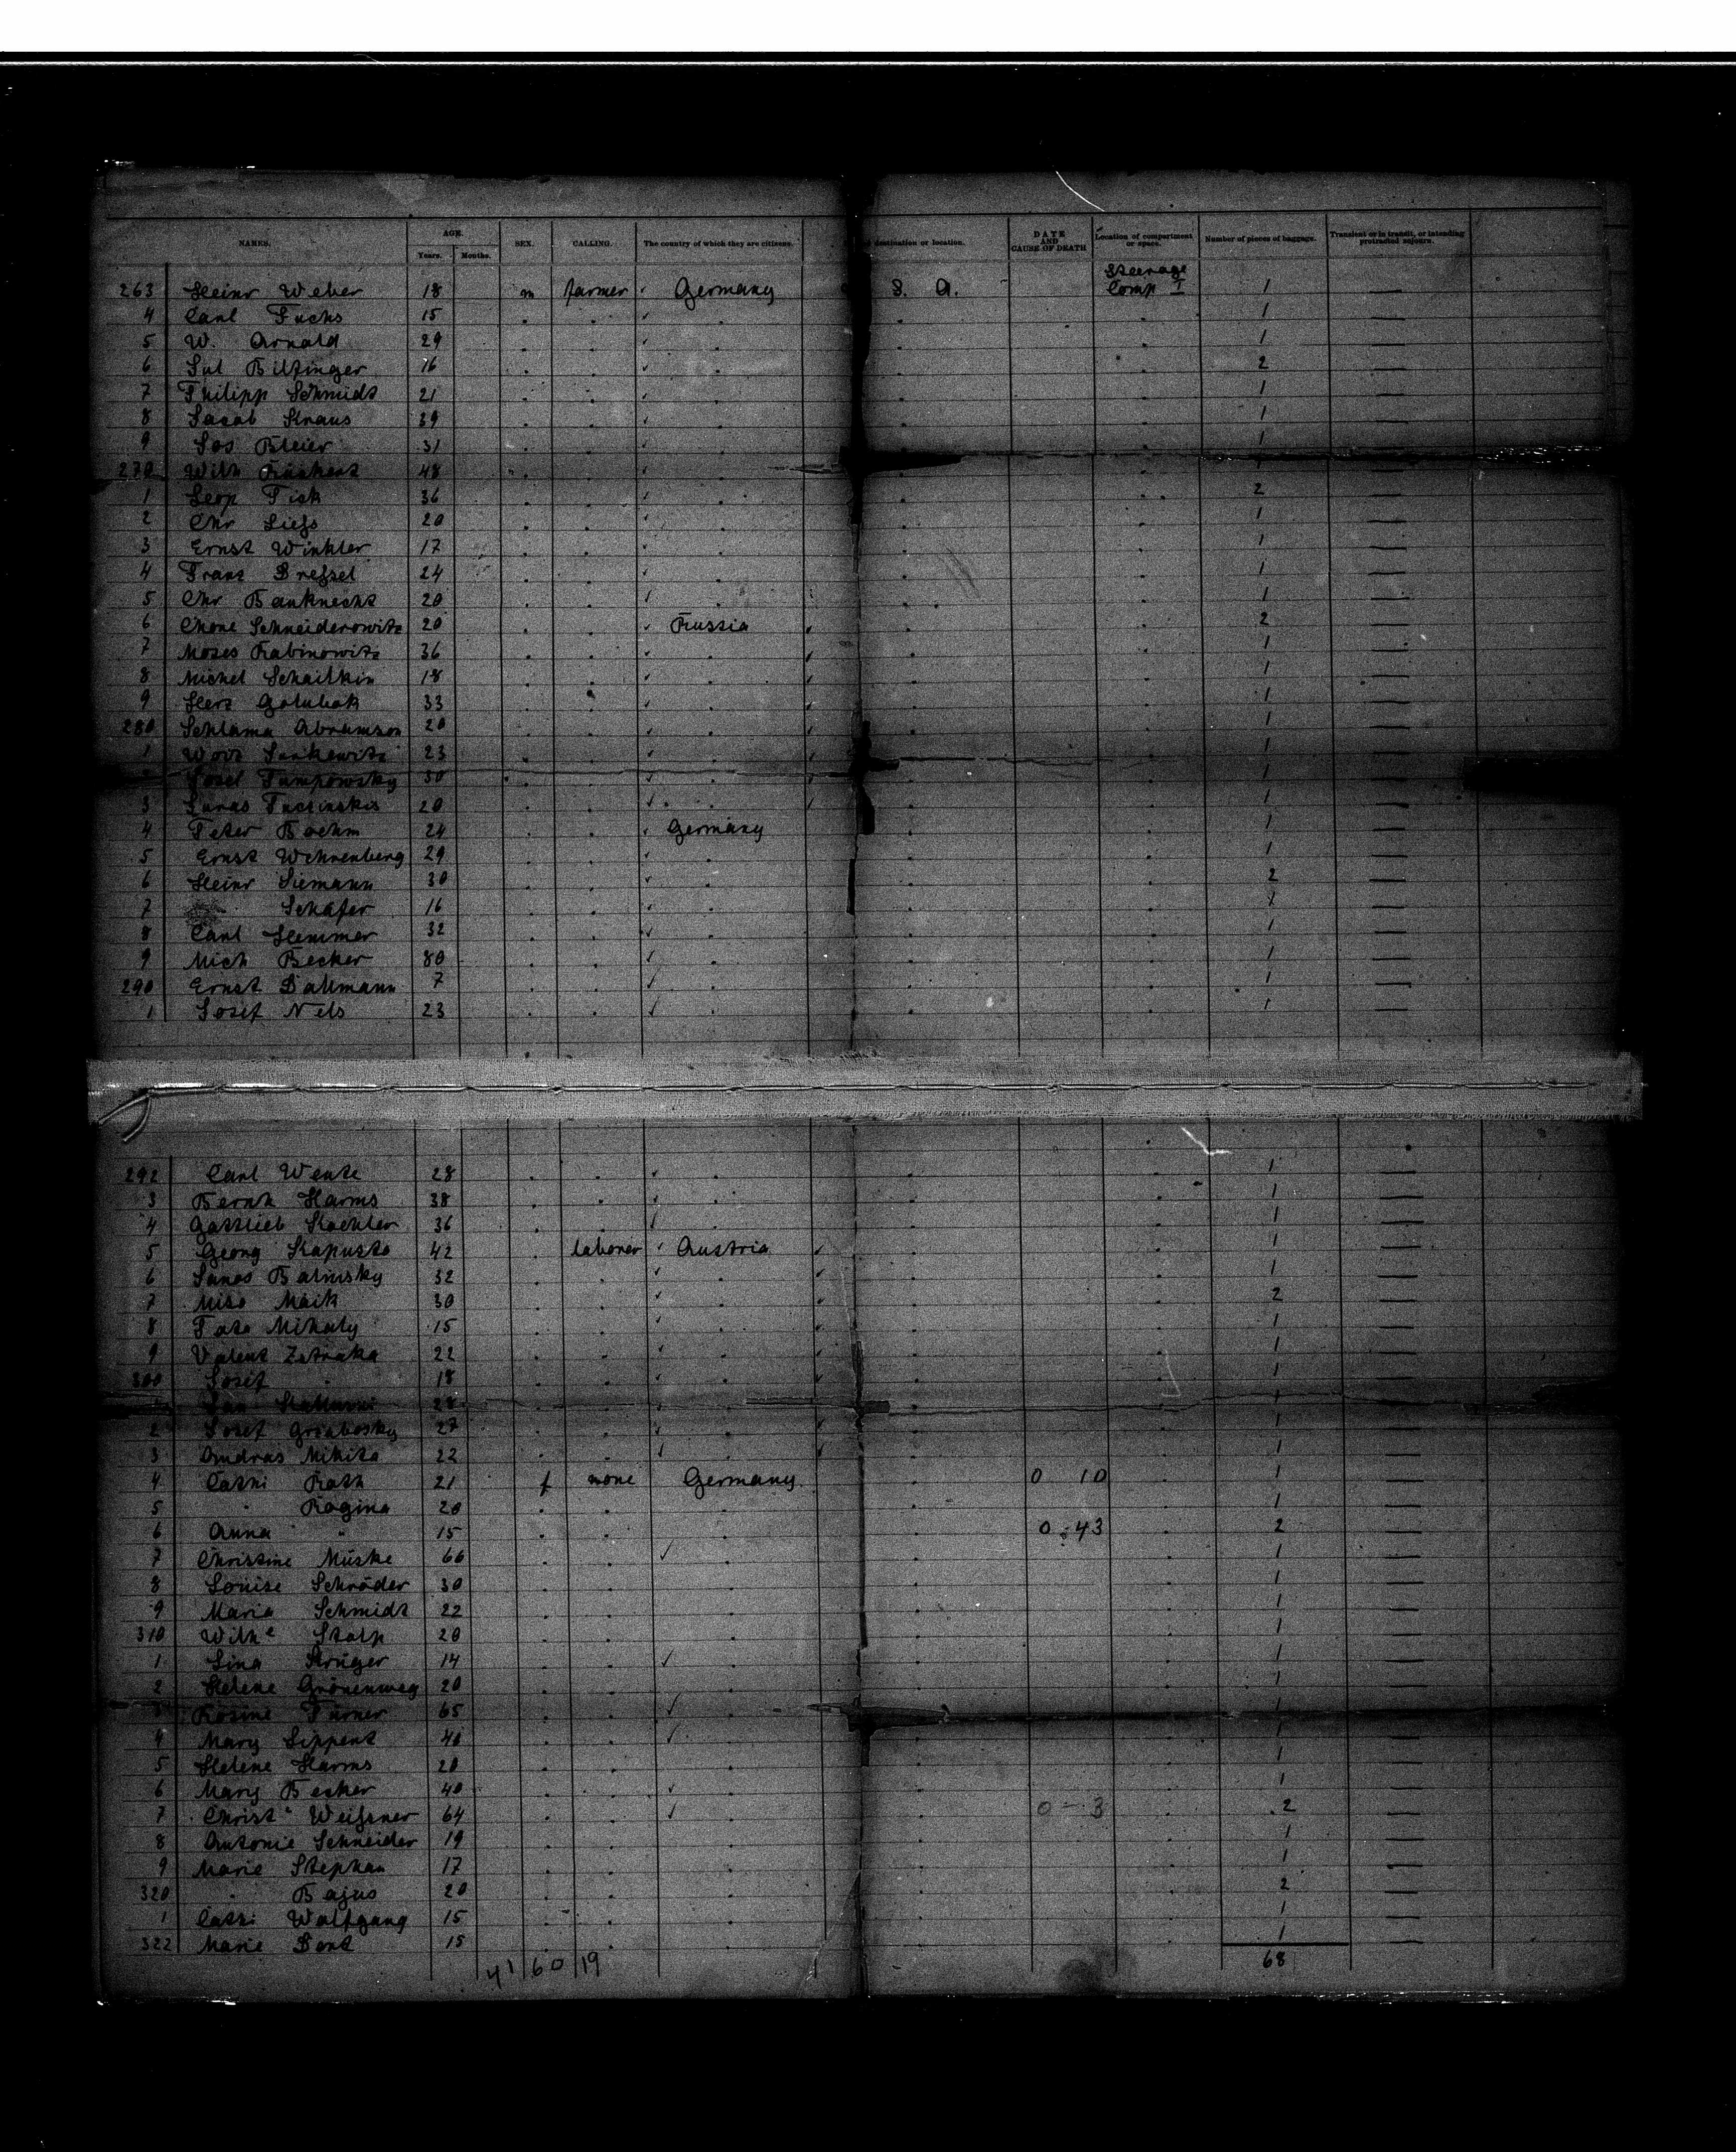 NAMES. AGE. Years. Months. SEX. CALLING. The country of which they are citizens. destination or location. DATE AND CAUSE OF DEATH Location of compartment or space. Number of pieces of baggage. Transient or in transit, or intending protracted sojourn.
263 Heinr Weber 18 m farmer Germany S. A. Steerage Comp I 1 —
4 Carl Fuchs 15 1 —
5 W. Arnold 29 1 —
6 Jul Bitzinger 16 2 —
7 Philipp Schmidt 21 1 —
8 Jacob Kraus 39 1 —
9 Jos Bleier 31 1
270 Wilh Rückert 48
1 Leop Pick 36 2 —
2 Chr Liefs 20 1 —
3 Ernst Winkler 17 1 —
4 Franz Drefsel 24 1 —
5 Chr Bauknecht 20 1 —
6 Chone Schneiderowitz 20 Russia 2 —
7 Moses Rabinowitz 36 1 —
8 Michel Schaitkin 18 1 —
9 Herz Golubok 33 1 —
280 Schlama Abramson 20 1 —
1 23 1 —
Josel Pumpowsky 30 1 —
3 20 1 —
4 Peter Boehm 24 Germany 1 —
5 Ernst Wehrenberg 29 1 —
6 Heinr Siemann 30 2 —
7 Schäfer 16 1 —
8 Carl Hemmer 32 1 —
9 Mich Becker 80 1 —
290 Ernst Dallmann 7 1 —
1 Josef Nels 23 1 —
292 Carl Wente 28 1 —
3 Bernh Harms 38 1 —
4 Gottlieb Koehler 36 1 —
5 Georg Kapusta 42 laborer Austria 1 —
6 Janos Balinsky 32 1 —
7 Miso Maik 30 2 —
8 Pato Mihaly 15 1 —
9 Valent 22 1 —
300 Josef " 18 1 —
Jan 28 1
2 Josef Grabosky 27 1 —
3 Andras Mikita 22 1 —
4 Cathi Rath 21 f none Germany 0 10 1 —
5 " Ragina 20 1 —
6 Anna " 15 0 43 2 —
7 Christine Müske 66 1 —
8 Louise Schröder 30 1 —
9 Maria Schmidt 22 1 —
310 Wilhe Stolp 20 1 —
1 Lina Krüger 14 1 —
2 Helene Grönenweg 20 1 —
3 Rosine Turner 65 1 —
4 Mary Lippert 1 —
5 Helene Harms 20 1 —
6 Mary Becker 40 1 —
7 Christe Weifsner 64 0 - 3 2 —
8 Antonie Schneider 19 1 —
9 Marie Stephan 17 1 —
320 " Bajus 20 2 —
1 Cathi Wolfgang 15 1 —
322 Marie Dont 15 1 —
41 60 19 68